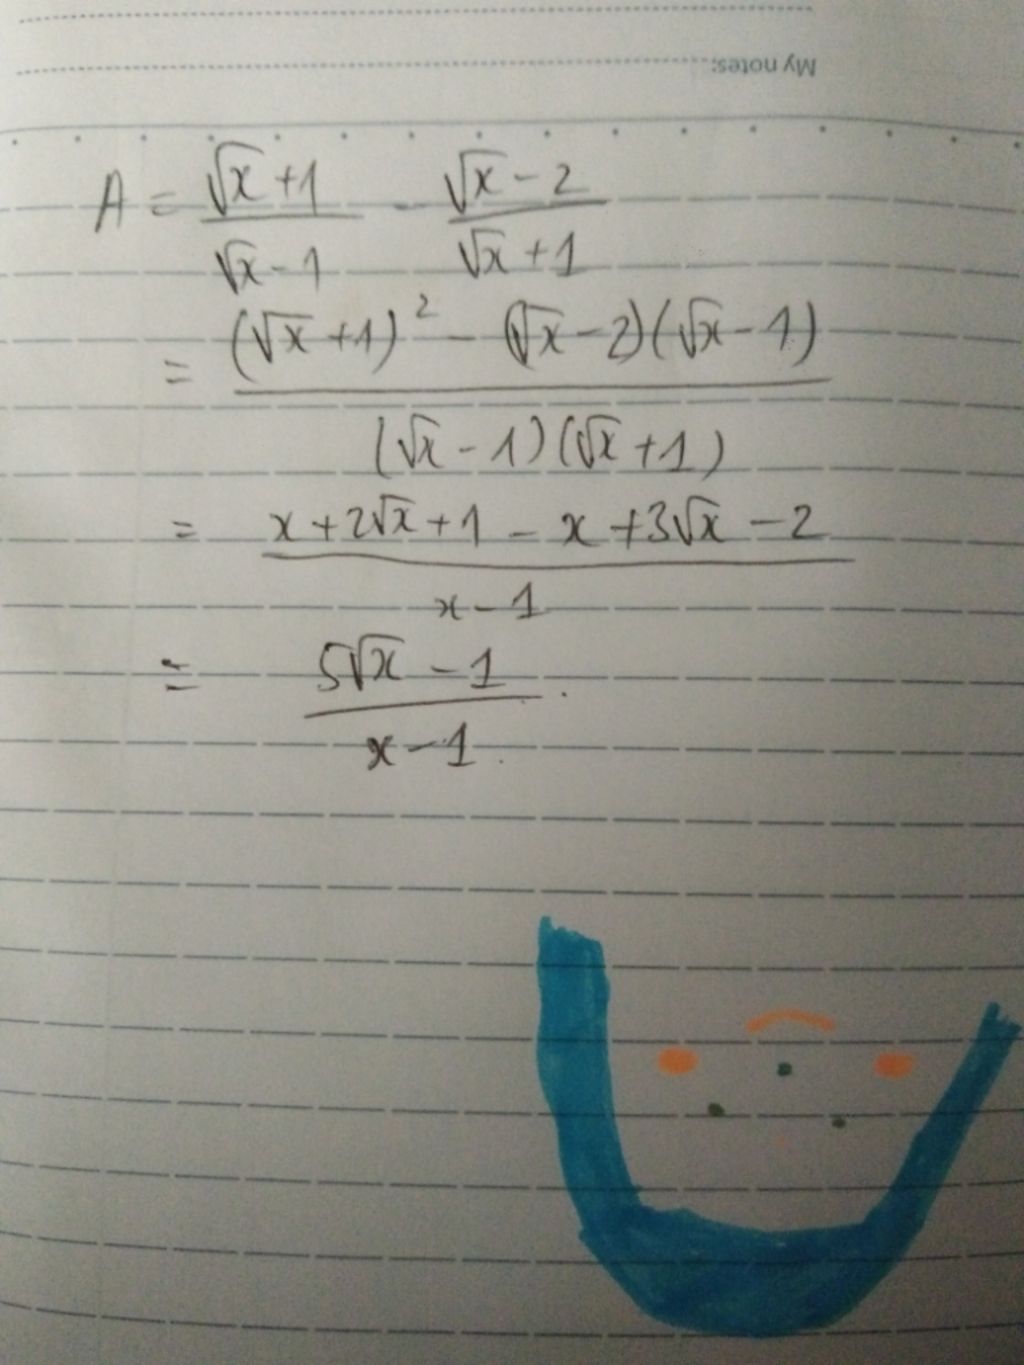 My notes:
A = \frac{\sqrt{x}+1}{\sqrt{x}-1} - \frac{\sqrt{x}-2}{\sqrt{x}+1}
= \frac{(\sqrt{x}+1)^2 - (\sqrt{x}-2)(\sqrt{x}-1)}{(\sqrt{x}-1)(\sqrt{x}+1)}
= \frac{x+2\sqrt{x}+1-x+3\sqrt{x}-2}{x-1}
= \frac{5\sqrt{x}-1}{x-1}.